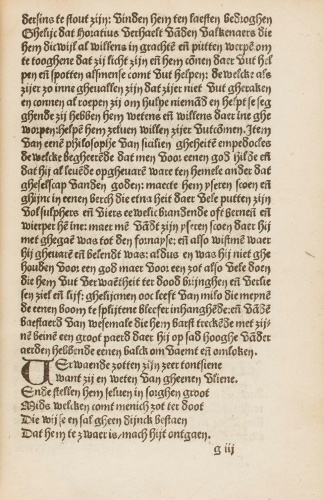 dersins te stout zijn: Vinden hem ten laesten bedroghen
Ghelic dat Horatius Verhaelt Vanden Valkenaers die
hem dicwijl al willens in grachtē en putten worpē om
te tooghene dat zij licht zijn en hem cōnen daer Vut hel
pen en spotten alsmense comt Vut helpen: dewelcke als
zijer zo inne gheuallen zijn dat zijer niet Vut gheraken
en connen al roepen zij om hulpe niemād en helpt se seg
ghende zij hebben hem wetens en willens daer ine ghe
worpen: helpē hem zeluen willen zijer Vutcōmen. Item
Van eenē philosophe Van sicilien gheheitē empedocles
dewelcke begheerēde dat men Voor eenen god hilde en
dat hij al leuēde opgheuarē ware ten hemele ander dat
gheselscap Vanden goden: maecte hem yseren scoen en
ghijnc in eenen berch die etna heit daer Vele putten zijn
Vol sulphers en Viers eewelic brandende oft bernen en
wierper hē ine: maer mē Vandt zijn yserē scoen daer hij
met ghegaē was tot den fornayse: en also wistmē waer
hij gheuarē en belendt was: aldus en was hij niet ghe
houden Voor een god maer Voor een zot also Vele doen
die hem Vut Verwaetheit ter doot brijnghen en Verlie
sen ziel en lijf: ghelijc men ooc leest Van milo die meynē
de eenen boom te splijtene bleefer inhanghēde: en Vādē
baestaerd Van wesemale die hem barst treckēde met zij-
nē beinē een groot paerd daer hij op sad hooghe Vāder
aerden hebbende eenen balck om Vaemt en omloken.
VErwaende zotten zijn zeer tontsiene
want zij en weten Van gheenen Vliene.
Ende stellen hem seluen in sorghen groot
Mids welcken comt menich zot ter doot
Die wijse en sal gheen dijnck bestaen
Dat hem te zwaer is/mach hijt ontgaen.
g iij